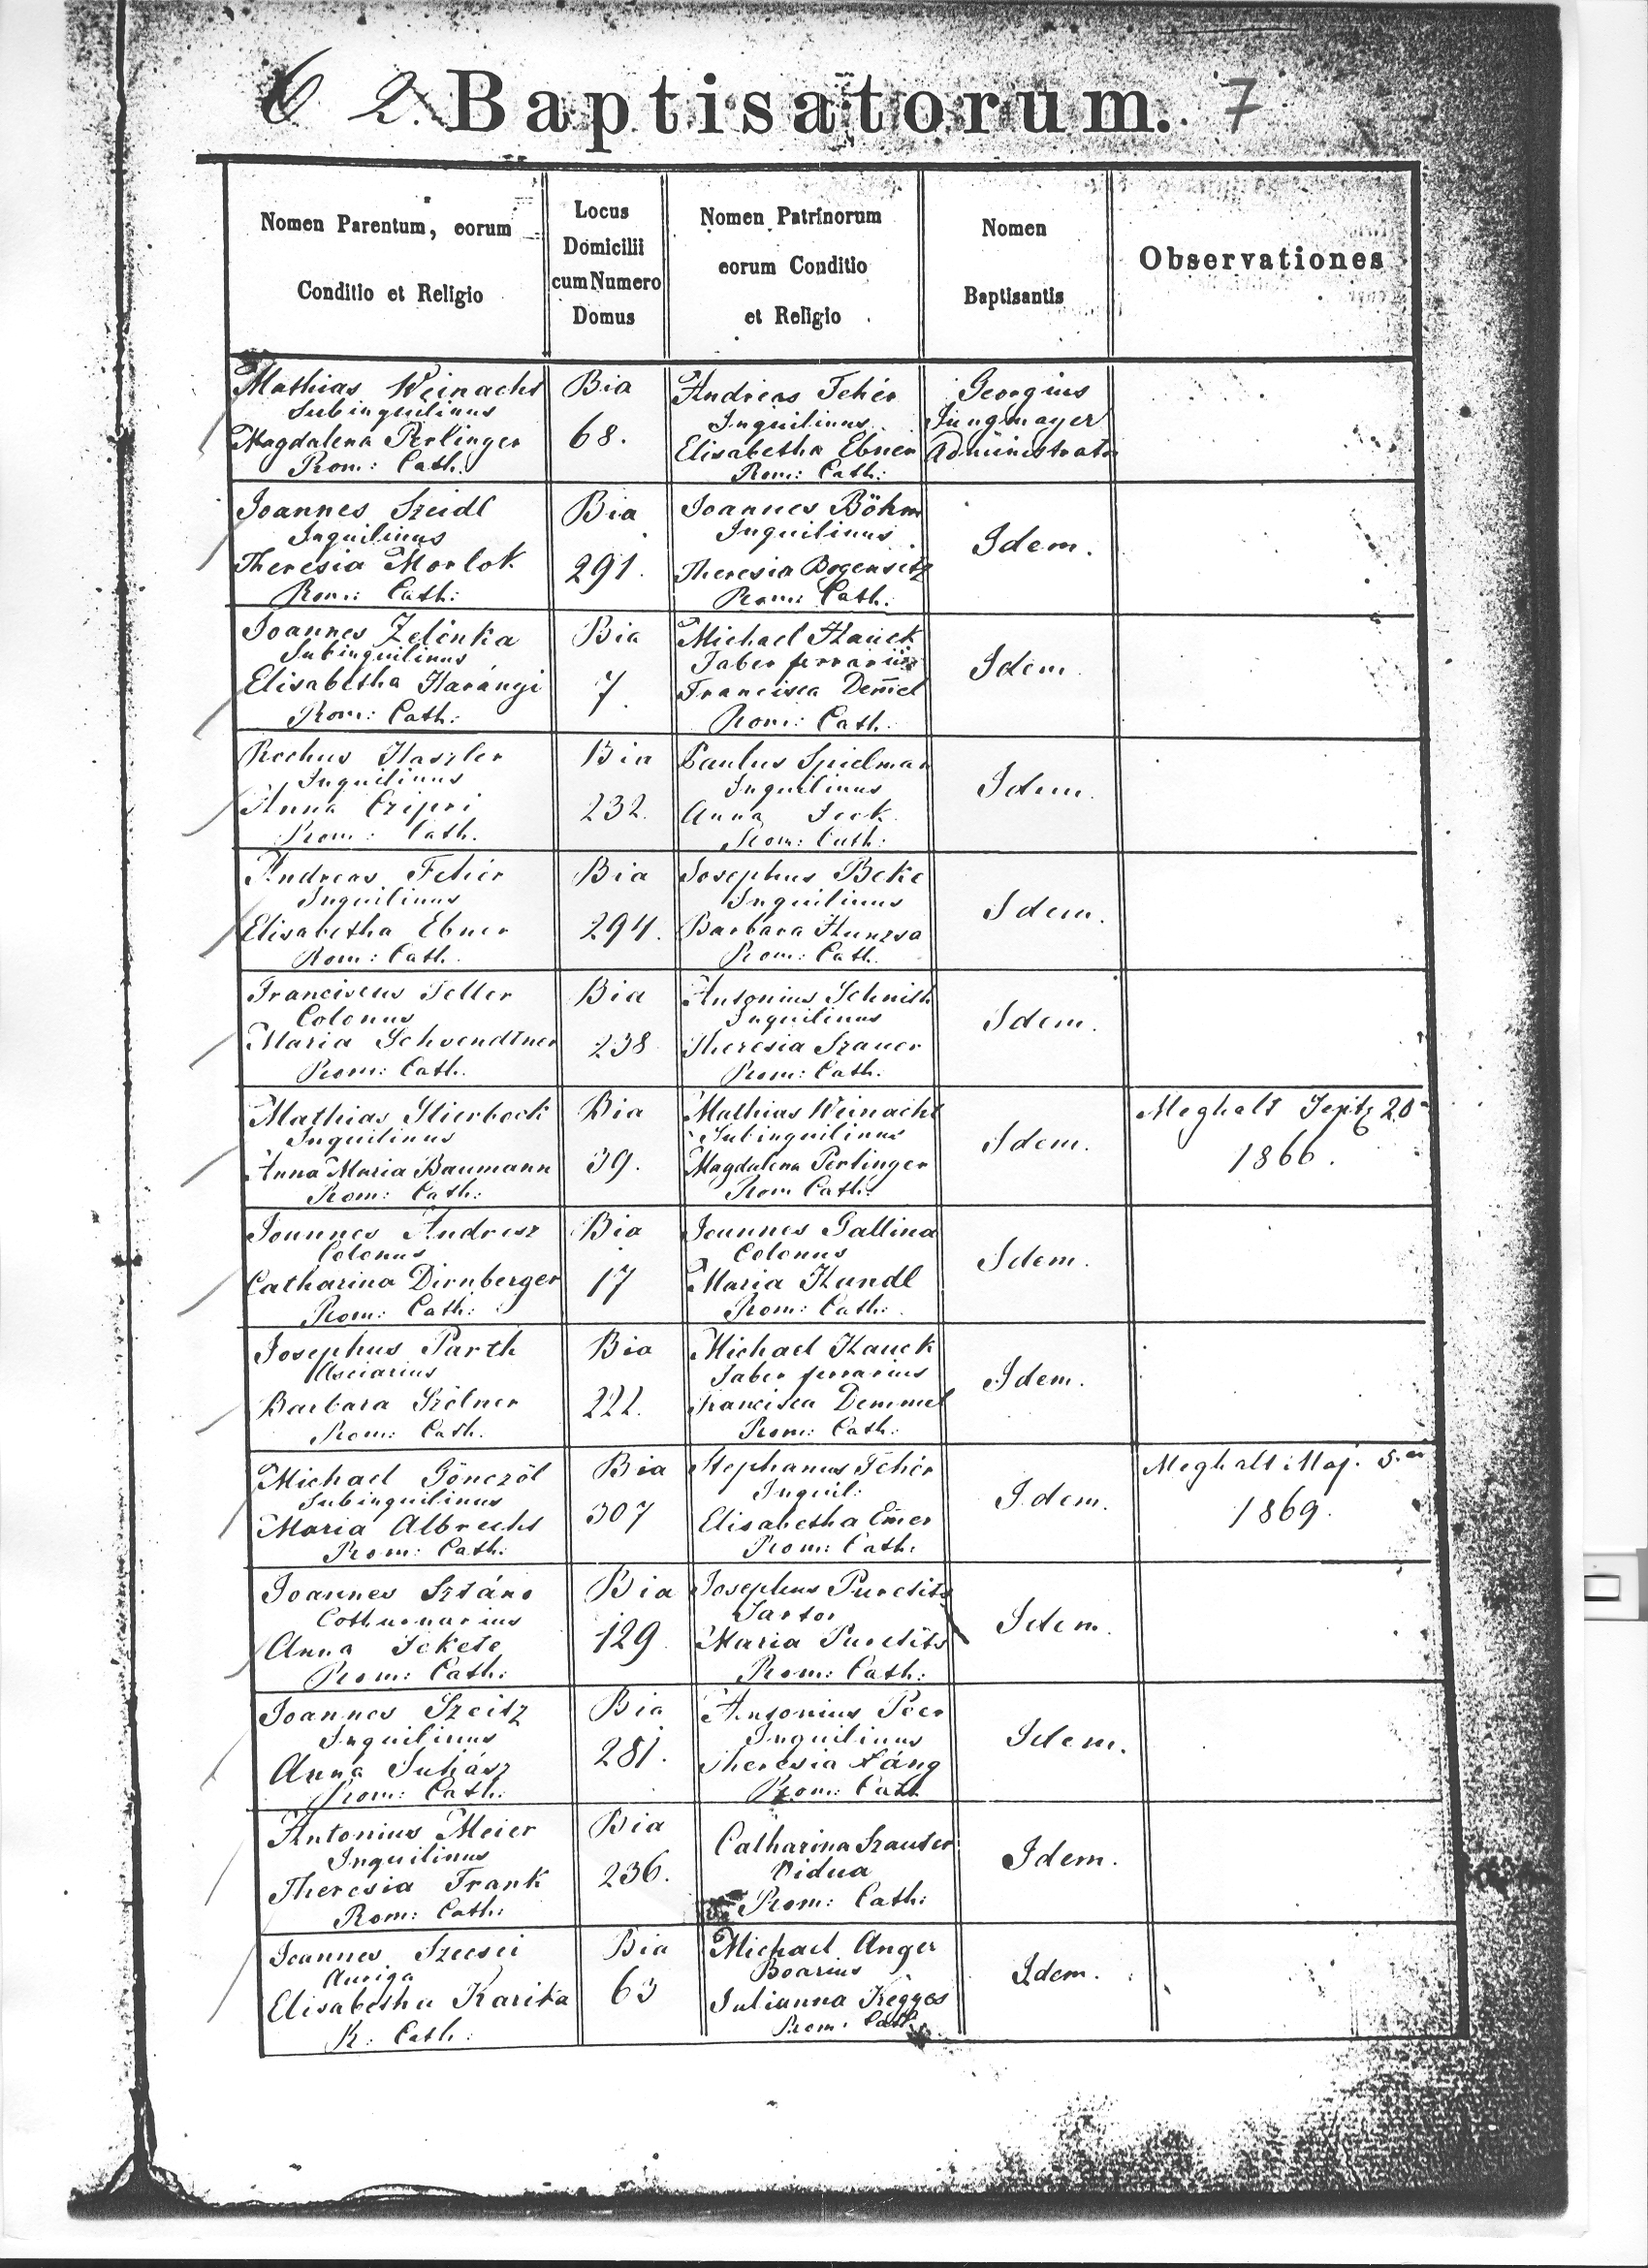 6 2. Baptisatorum. 7
Nomen Parentum, eorum
Conditio et Religio
Locus
Domicilii
cum Numero
Domus
Nomen Patrinorum
eorum Conditio
et Religio
Nomen
Baptisantis
Observationes
Mathias Weinacht
Subinquilinus
Magdalena Perlinger
Rom: Cath:
Bia
68.
Andreas Fehér
Inquilinus
Elisabetha Ebner
Rom: Cath:
Georgius
Jungmayer
Administrator
Joannes Szeidl
Inquilinus
Theresia Morlok
Rom: Cath:
Bia
291.
Joannes Böhm
Inquilinus
Theresia Bogensitz
Rom: Cath:
Idem.
Joannes Zelenka
Subinquilinus
Elisabetha Harángi
Rom: Cath:
Bia
7.
Michael Hauck
Faber ferrarius
Francisca Dem̄el
Rom: Cath:
Idem.
Rochus Haszler
Inquilinus
Anna Czipri
Rom: Cath.
Bia
232.
Paulus Spielman
Inquilinus
Anna
Rom: Cath:
Idem.
Andreas Fehér
Inquilinus
Elisabetha Ebner
Rom: Cath.
Bia
294.
Josephus Beke
Inquilinus
Barbara
Rom: Cath.
Idem.
Franciscus Feller
Colonus
Maria Schvendtner
Rom: Cath.
Bia
238
Antonius Schmith
Inquilinus
Theresia Szauer
Rom: Cath.
Idem.
Mathias Stierbock
Inquilinus
Anna Maria Baumann
Rom: Cath:
Bia
39.
Mathias Weinacht
Subinquilinus
Magdalena Perlinger
Rom Cath:
Idem.
Meghalt
1866.
Joannes Andresz
Colonus
Catharina Dirnberger
Rom: Cath:
Bia
17
Joannes Gallina
Colonus
Maria Handl
Rom: Cath:
Idem.
Josephus Parth
Asciarius
Barbara Szólner
Rom: Cath.
Bia
222.
Michael Hauck
Faber ferrarius
Francisca Demmel
Rom: Cath:
Idem.
Michael Gönczöl
Subinquilinus
Maria Albrecht
Rom: Cath:
Bia
307
Stephanus Fehér
Inquil:
Elisabetha Em̄er
Rom: Cath:
Idem.
Meghalt Maj. 5.én
1869.
Joannes Sztáno
Cothurnarius
Anna Fekete
Rom: Cath:
Bia
129
Josephus Puretits
Sartor
Maria Puretits
Rom: Cath:
Idem.
Joannes Szeitz
Inquilinus
Anna Juhász
Rom: Cath:
Bia
281.
Antonius Peer
Inquilinus
Theresia Láng
Rom: Cath
Idem.
Antonius Meier
Inquilinus
Theresia Frank
Rom: Cath:
Bia
236.
Catharina Szauter
Vidua
Rom: Cath:
Idem.
Joannes Szecsei
Auriga
Elisabetha Karika
R: Cath:
Bia
63
Michael Anger
Boarius
Julianna Kegyes
Rom: Cath.
Idem.